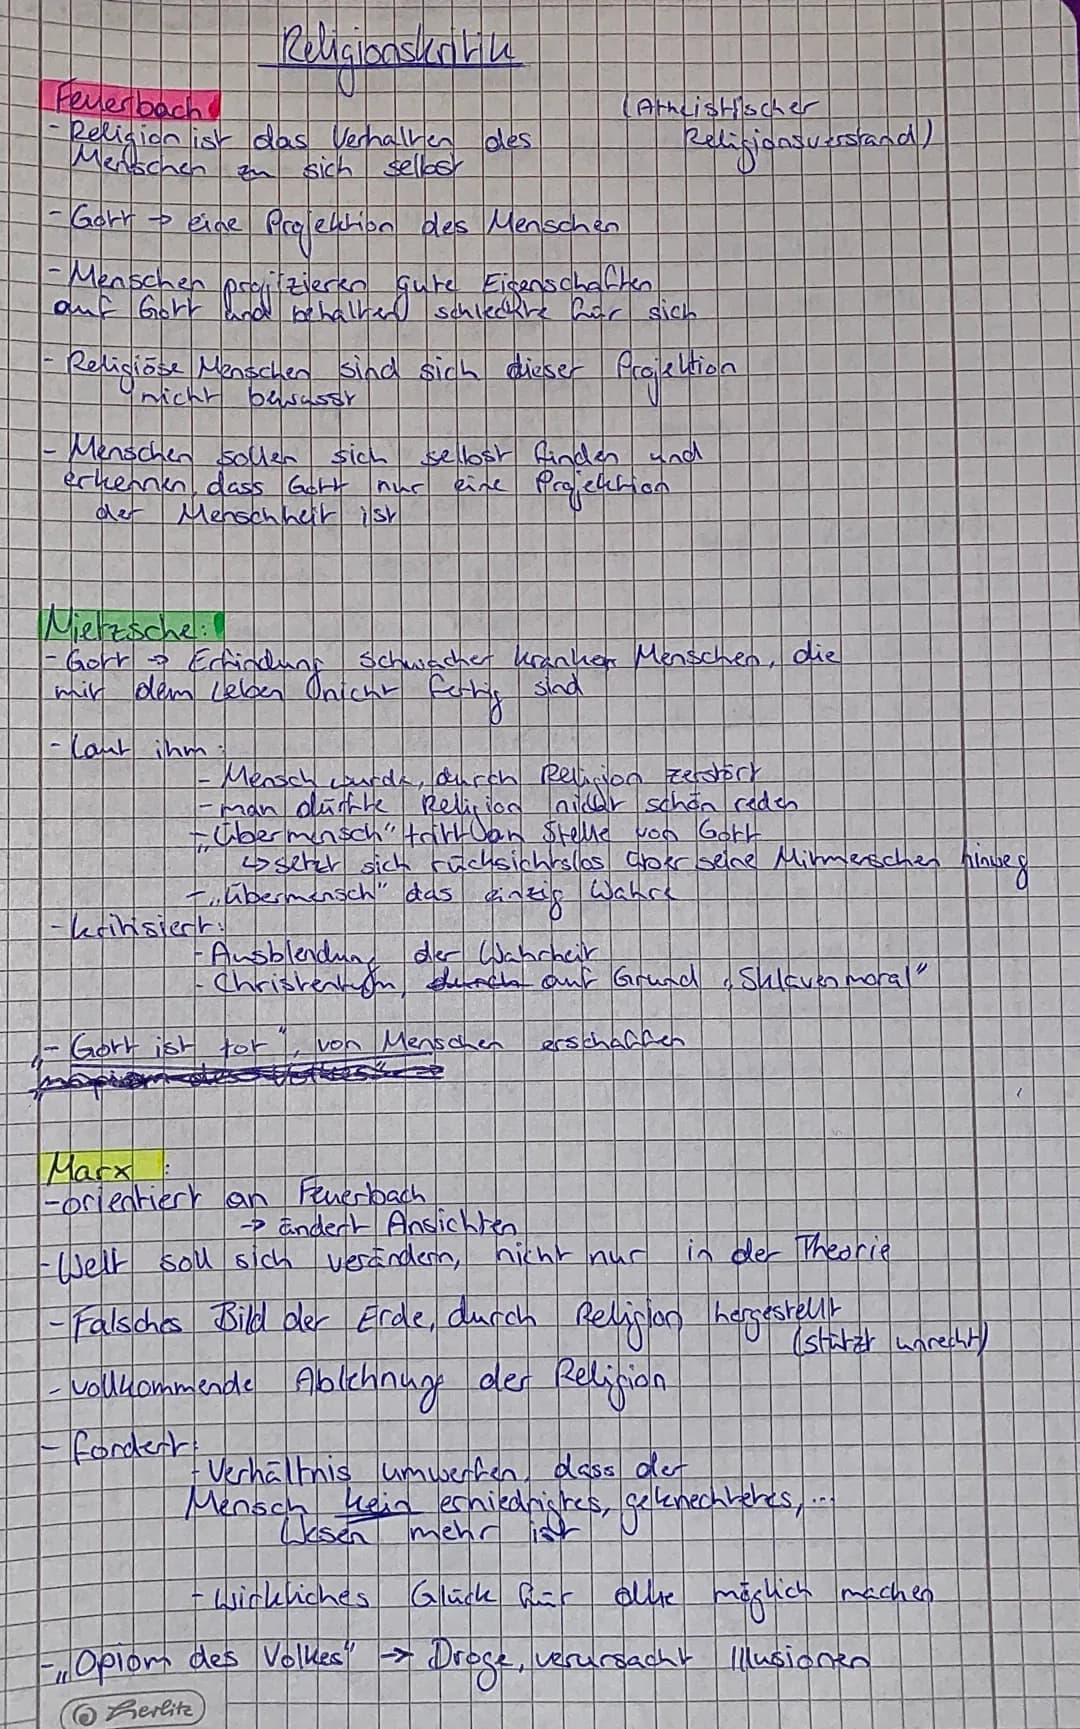 Religionskritik
Feuerbach:
(Atheistischer
- Religion ist das Verhalten des
Religionsverstand)
Menschen zu sich selbst
- Gott → eine Projektion des Menschen
- Menschen projizieren gute Eigenschaften
auf Gott und behalten schlechte für sich
- Religiöse Menschen sind sich dieser Projektion
nicht bewusst
- Menschen sollen sich selbst finden und
erkennen, dass Gott nur eine Projektion
der Menschheit ist
Nietzsche:
- Gott → Erfindung schwacher kranker Menschen, die
mit dem Leben nicht fertig sind
- laut ihm:
- Mensch wurde, durch Religion zerstört
- man dürfte Religion nicht schön reden
- „Übermensch" tritt an Stelle von Gott
↳ setzt sich rücksichtslos über seine Mitmenschen hinweg
- „Übermensch" das einzig Wahre
- kritisiert:
- Ausblendung der Wahrheit
- Christentum, durch auf Grund „Sklavenmoral"
„- Gott ist tot", von Menschen erschaffen
Marx:
- orientiert an Feuerbach
→ ändert Ansichten
- Welt soll sich verändern, nicht nur in der Theorie
- Falsches Bild der Erde, durch Religion hergestellt
(stützt unrecht)
- vollkommende Ablehnung der Religion
- fordert:
- Verhältnis umwerfen, dass der
Mensch kein erniedrigtes, geknechtetes, ...
Wesen mehr ist
- wirkliches Glück für alle möglich machen
- „Opiom des Volkes" → Droge, verursacht Illusionen
herlitz